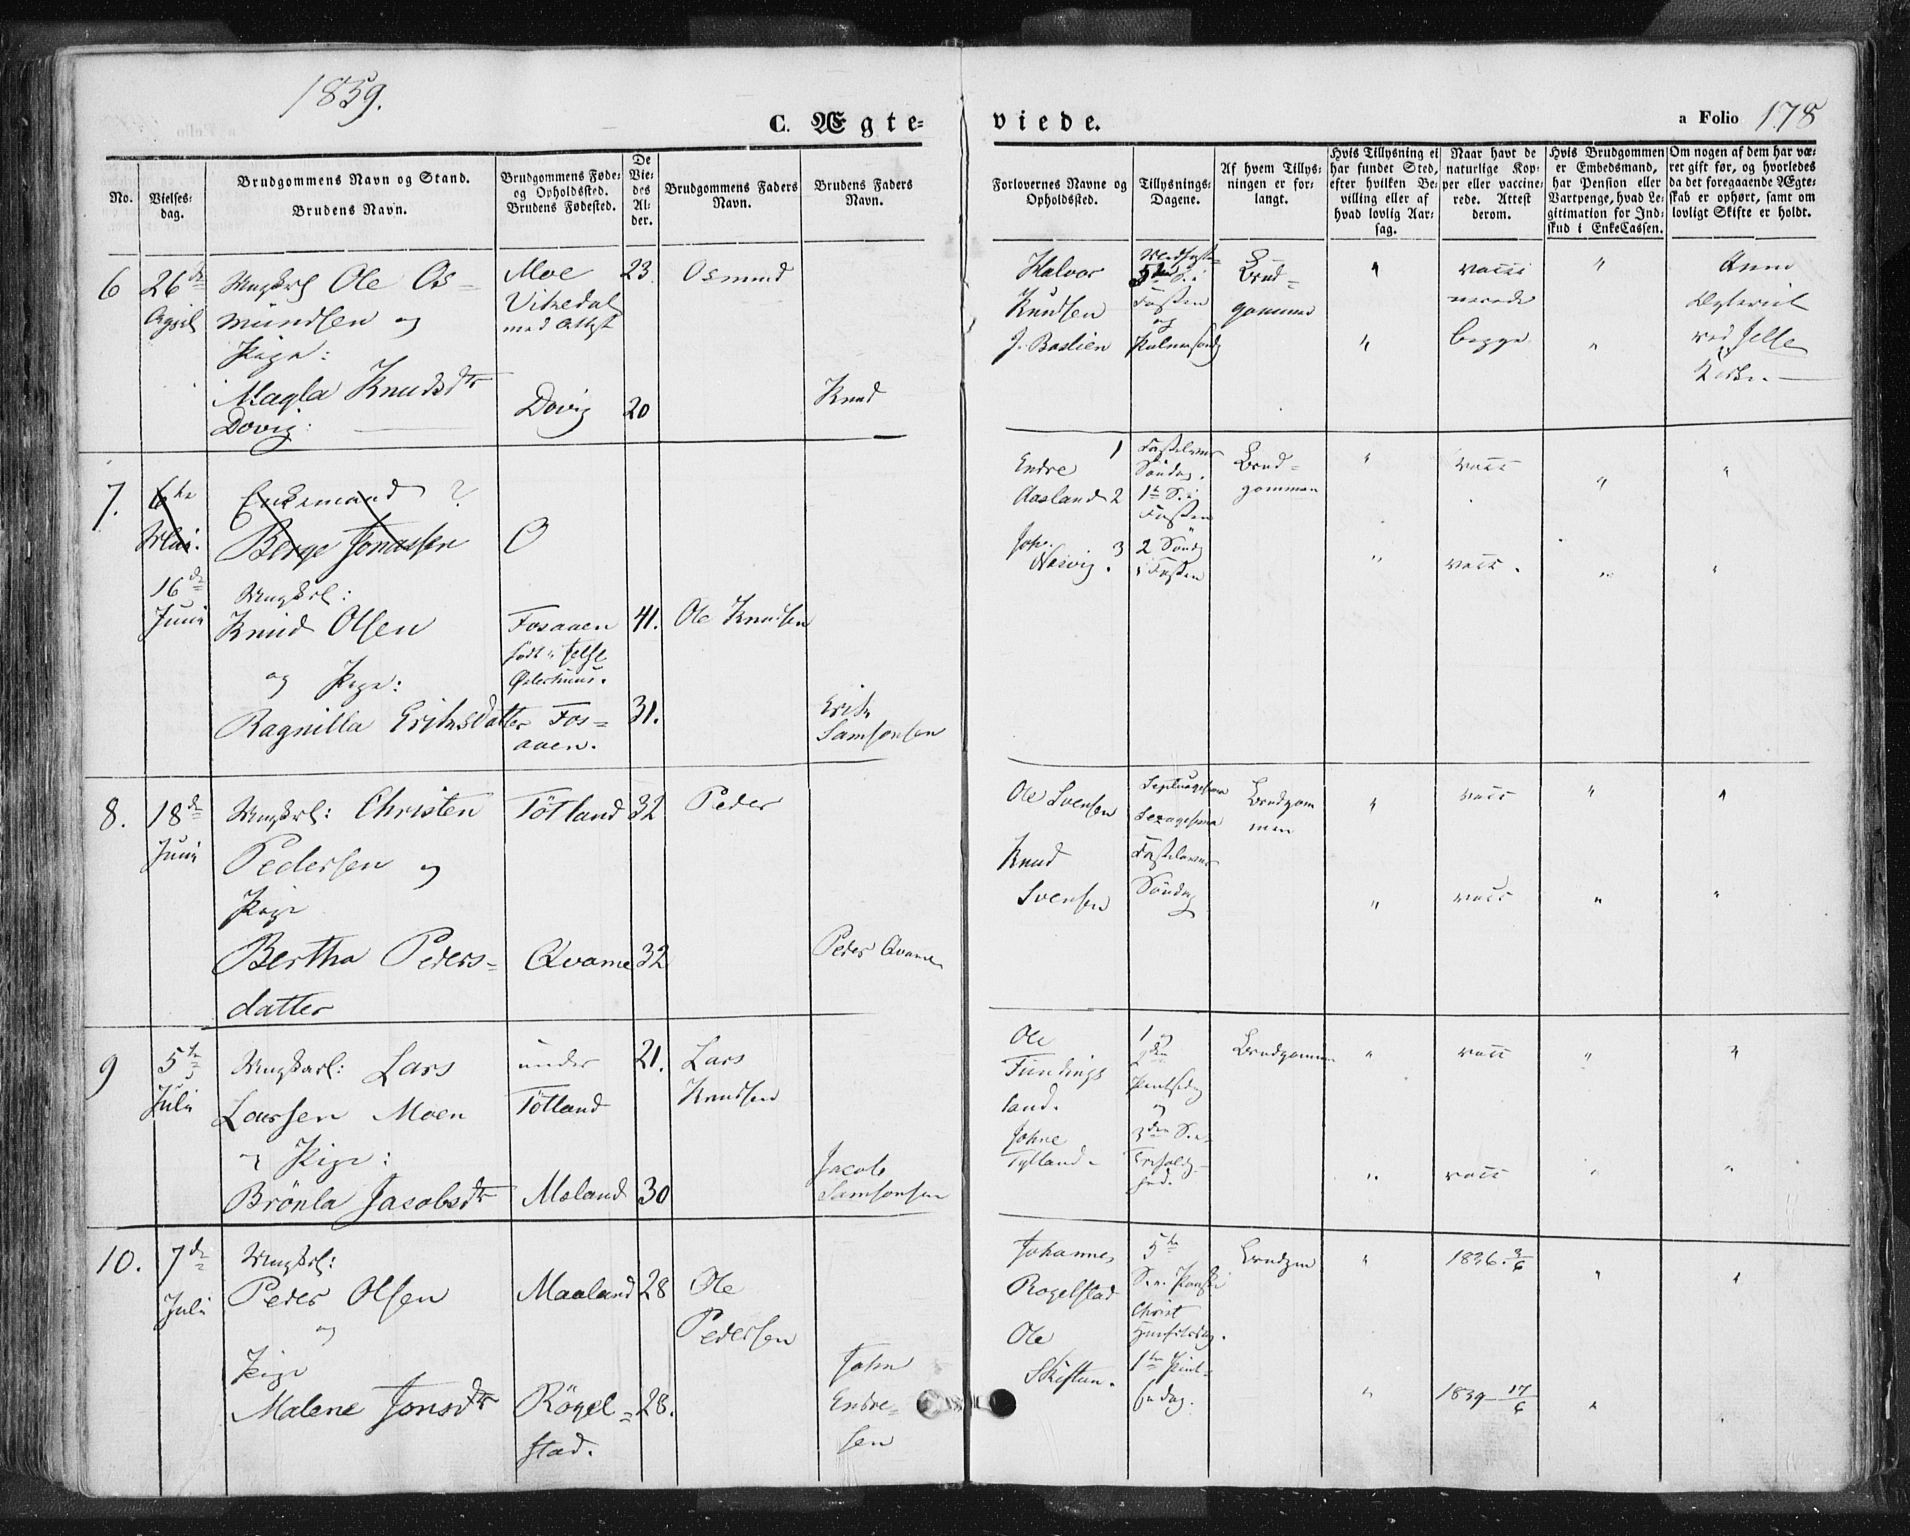 1839.
C. Ægte-
viede.
a Folio 178
No.
Vielses-
dag.
Brudgommens Navn og Stand.
Brudens Navn.
Brudgommens Føde-
og Opholdssted.
Brudens Fødested.
De
Vie-
des
Al-
der.
Brudgommens Faders
Navn.
Brudens Faders
Navn.
Forlovernes Navne og
Opholdssted.
Tillysnings-
Dagene.
Af hvem Tillys-
ningen er for-
langt.
Hvis Tillysning ei
har fundet Sted,
efter hvilken Be-
villing eller af
hvad lovlig Aar-
sag.
Naar havt de
naturlige Kop-
per eller vaccine-
rede. Attest
derom.
Hvis Brudgommen
er Embedsmand,
har Pension eller
Vartpenge, hvad Le-
gitimation for Ind-
skud i EnkeCassen.
Om nogen af dem har væ-
ret gift før, og hvorledes
da det foregaaende Ægte-
skab er ophørt, samt om
lovligt Skifte er holdt.
6
26de
April
Ungkrl Ole Os-
mundsen og
Pige:
Magla Knudsdtr
Dovig:
Moe
Vikedal
med Attest
Dovig
23
20
Osmund
Knud
Halvor
Knudsen
J. Bastien
5te S. i
Fasten
og
Palmesøndg
Brud-
gommen
vacci
nerede
begge
ved Jelse
7.
6te
Mai.
Enkemand ?
Berge Jonassen
O
16de
Juni
Ungkrl:
Knud Olsen
og Pige:
Ragnilla Eriksdatter
Fosaaen
født i Jelse
Østerhuus.
Fos-
aaen.
41.
31.
Ole Knudsen
Erik
Samsonsen
Endre 1
Aasland 2
Joh. 3
Fastelavns
Søndag.
1te S. i
Fasten
2 Søndg
i Fasten
Brud-
gommen
vacc
vacc.
8.
18de
Juni
Ungkrl: Christen
Pedersen og
Pige
Bertha Peders-
datter
Tötland
Qvame
32
32
Peder
Peder Qvame
Ole Svensen
Knud
Svensen
Septuagesima
Sexagesima
Fastelavns
Søndag
Brudgom
men
vacc
vacc
9
5te
Juli
Ungkarl: Lars
Larssen Moen
og Pige:
Brönla Jacobsdtr
under
Tötland
Maland
21.
30
Lars
Knudsen
Jacob
Samsonsen
Ole
Fundings
land.
Johne
Tytland
1 og
2den
Pintsedg
og
3den S. e.
Trefoldig-
hed.
Brudgommen
vacc
vacc
10.
7de
Juli
Ungkrl:
Peder Olsen
og
Pige
Malene Jonsdtr
Maaland
Rögel-
stad.
28
28.
Ole
Pedersen
John
Endre-
sen
Johannes
Rogelstad
Ole
5te
S. e. Paaske
Christ
Himfartsdag.
1te Pint-
sedag.
Brudgm
1836. 3/6
1839 17/6